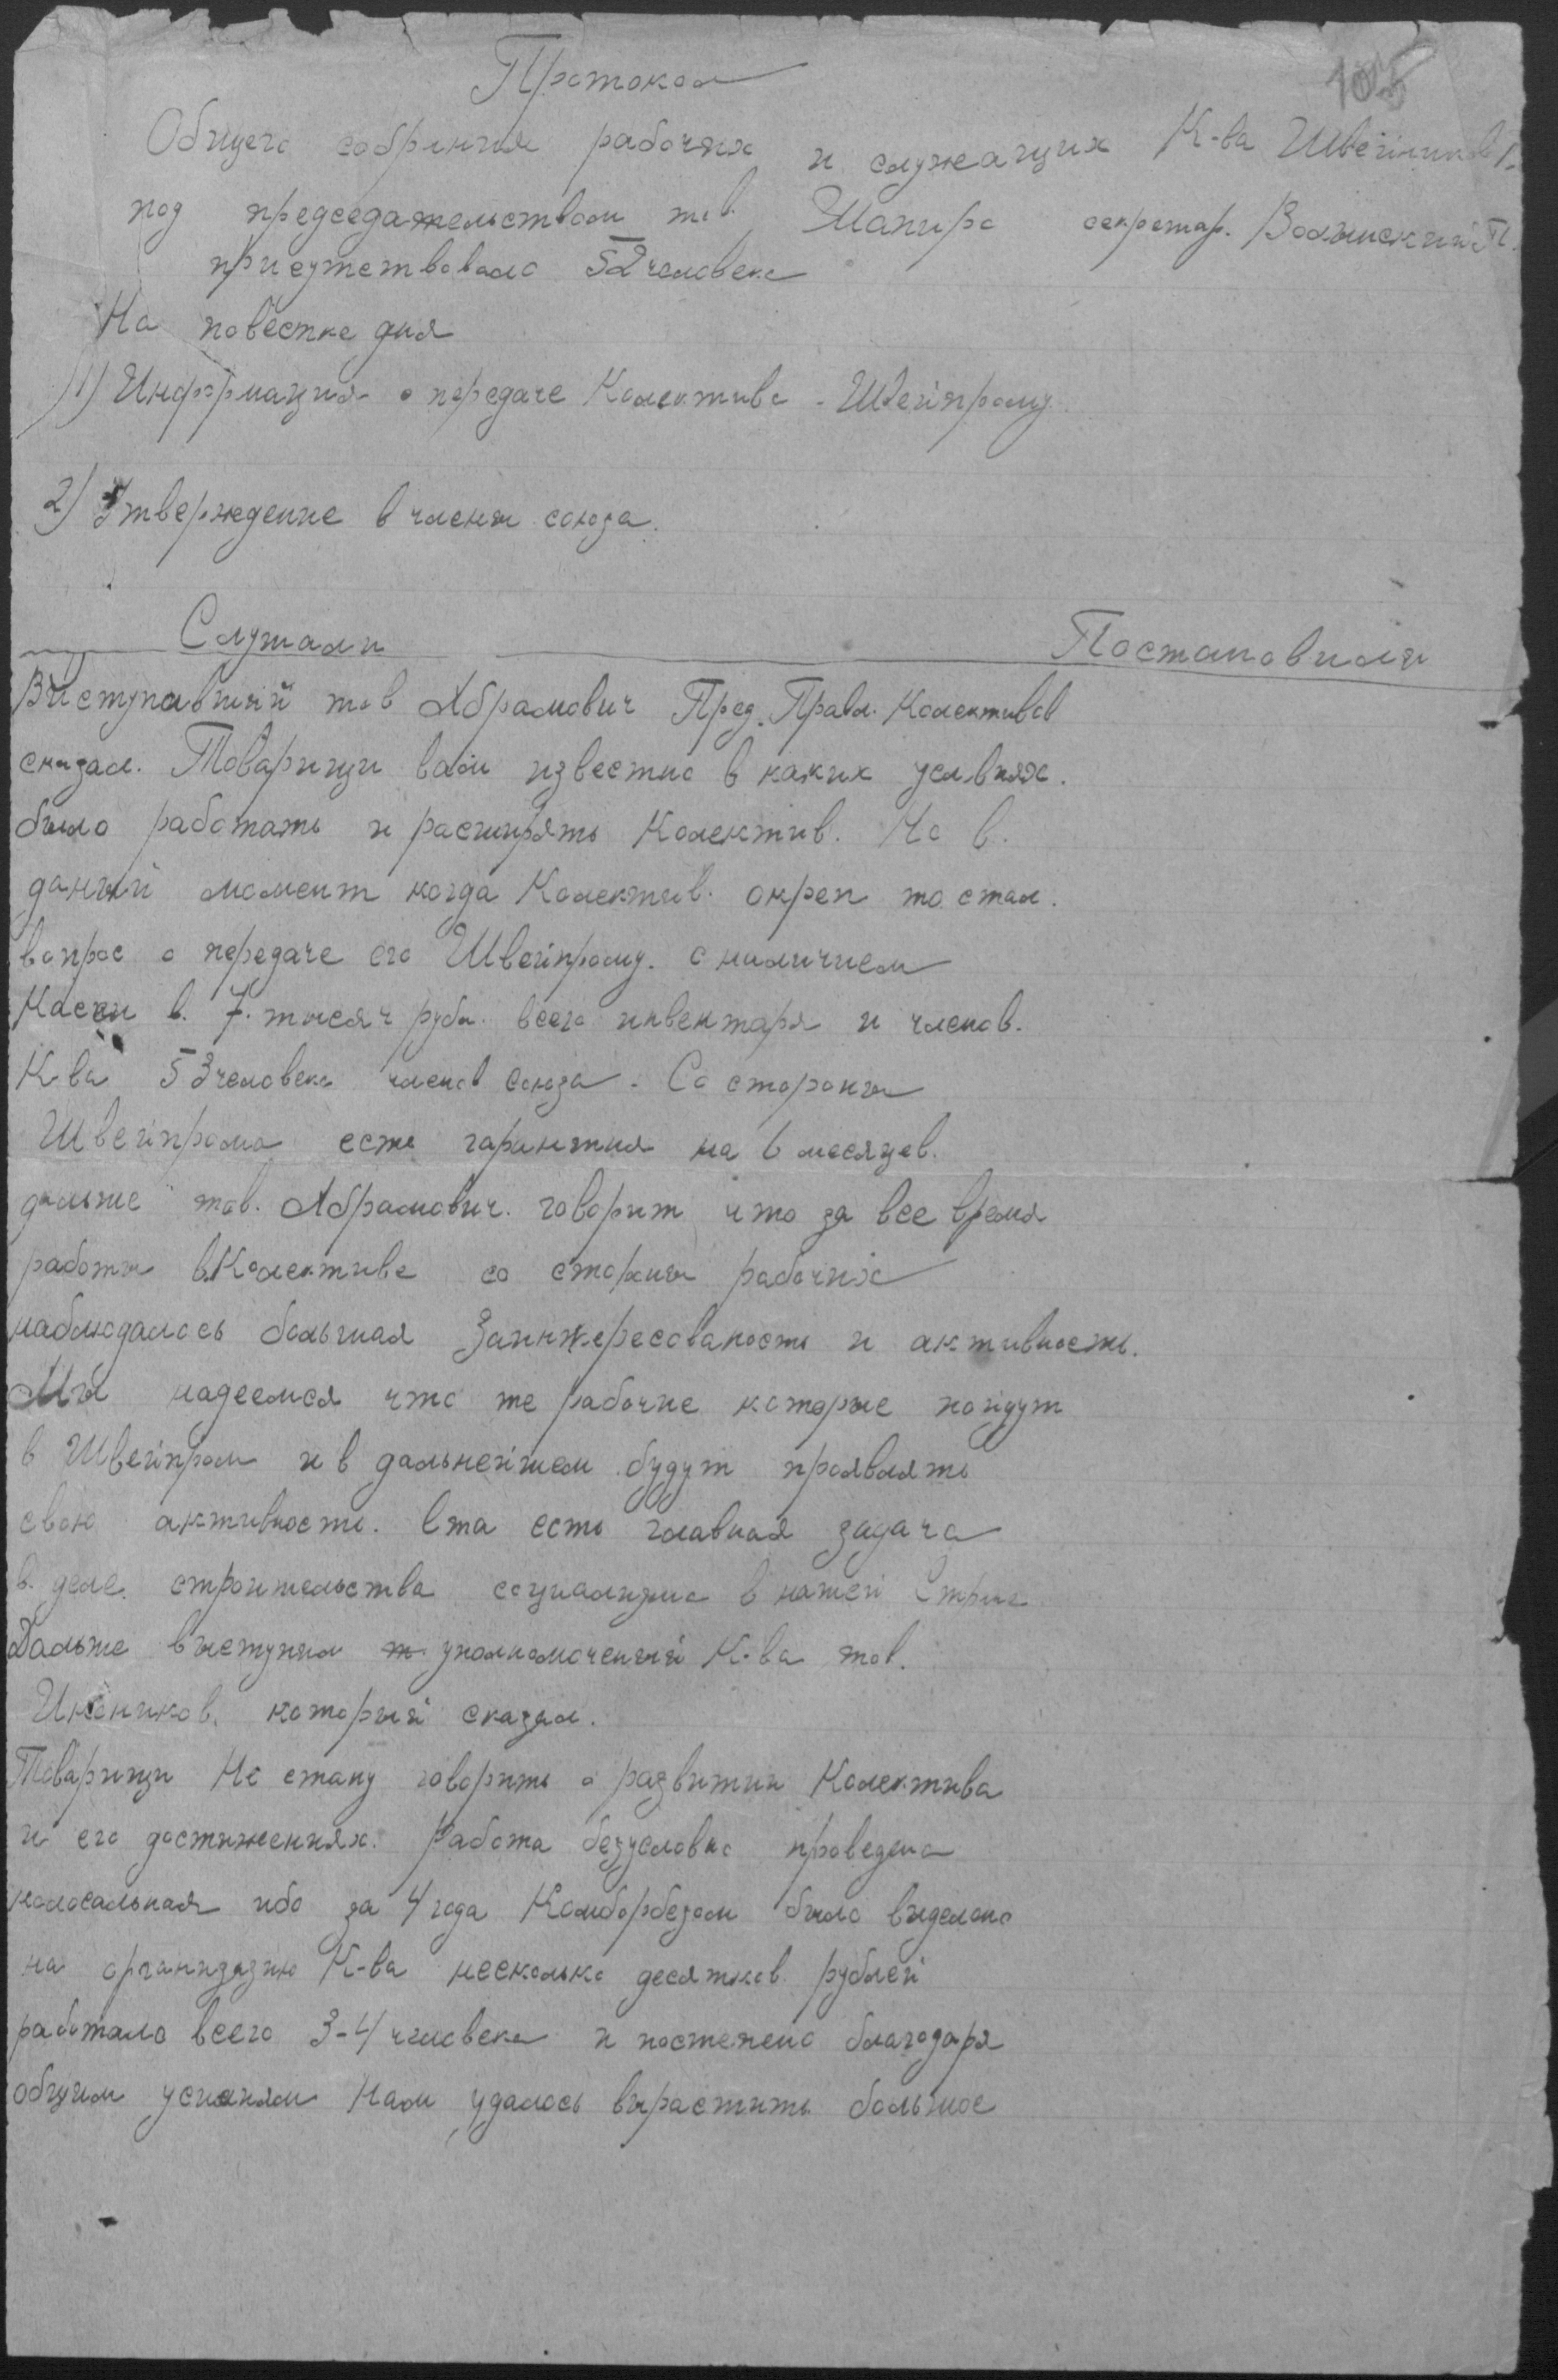 105
Протокол
Общего собрания рабочих и служащих К-ва Швейников
под председательством тов. Шапиро секретар. Волынский П.
присутствовало 52 человека
На повестке дня
1) Информация о передаче Колектива - Швейпрому
2) Утверждение в члены союза.
Слушали Постановили
Виступавший тов Абрамович Пред. Правл. Колективов
сказал. Товарищи вам известно в каких условиях.
было работать и расширять Колектив. Но в.
даный момент когда Колектив. окреп то стал.
вопрос о передаче его Швейпрому. с наличием
Кассы в. 7. тысяч руб. всего инвентаря и членов.
К-ва 53 человека членов союза - Со стороны
Швейпрома есть гарантия на 6 месяцев.
дальше тов. Абрамович. говорит что за все время
работы в Колективе со стороны рабочих
наблюдалось большая Заинтересованость и активность.
Мы надеемся что те рабочие которые пойдут
в Швейпром и в дальнейшем будут проявлять
свою активность. Ета есть главная задача
в. деле. строительства социализма в нашей Стране
Дальше выступил т уполномоченый К-ва тов.
который сказал.
Товарищи Не стану говорить о развитии Колектива
и его достижениях. Работа безусловно проведена
колосальная ибо за 4 года Комборбезом было виделено
на организазию К-ва несколько десятков рублей
работало всего 3-4 человека и постепено благодаря
общим усилиям Нам удалось вырастить большое